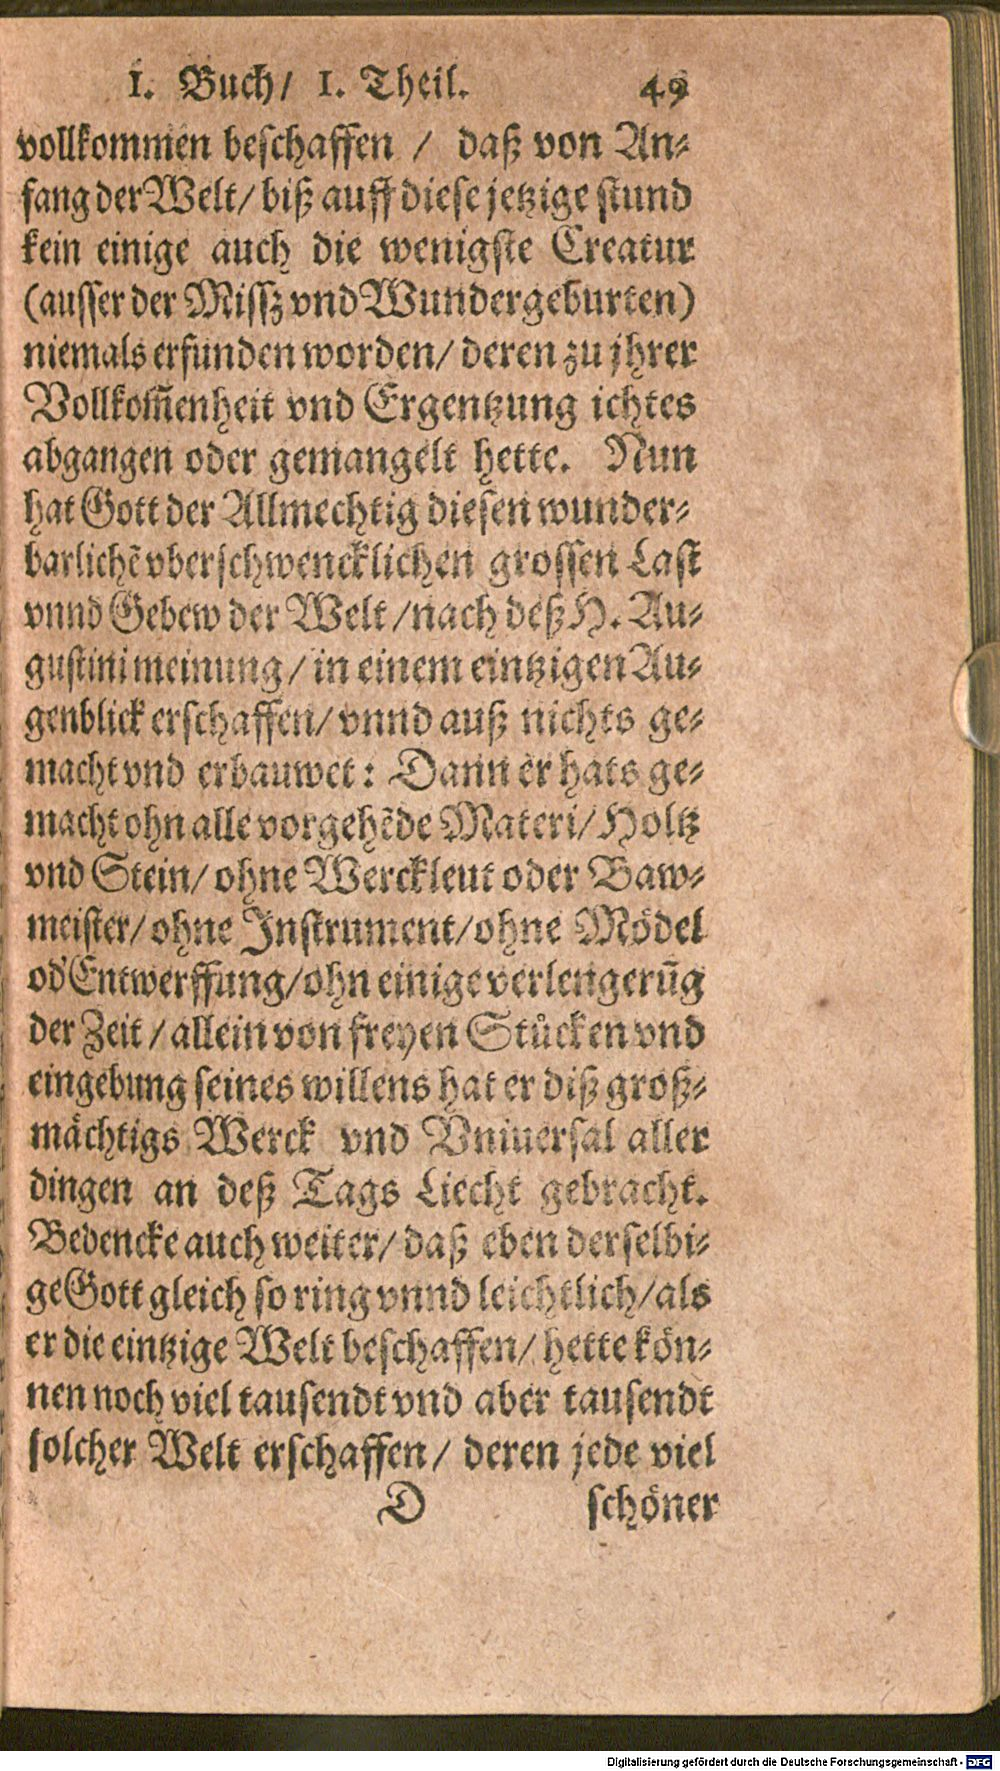 1. Buch/ 1. Theil. 49
vollkommen beschaffen / daß von An-
fang der Welt/ biß auff diese jetzige stund
kein einige auch die wenigste Creatur
(ausser der Missz vnd Wundergeburten)
niemals erfunden worden/ deren zu jhrer
Vollkom̃enheit vnd Ergentzung ichtes
abgangen oder gemangelt hette. Nun
hat Gott der Allmechtig diesen wunder-
barlichẽ vberschwencklichen grossen Last
vnnd Gebew der Welt /nach deß H. Au-
gustini meinung/ in einem eintzigen Au-
genblick erschaffen/ vnnd auß nichts ge-
macht vnd erbauwet: Dann er hats ge-
macht ohn alle vorgehẽde Materi/ Holtz
vnd Stein/ ohne Werckleut oder Baw-
meister/ ohne Instrument/ ohne Mödel
od' Entwerffung/ ohn einige verlengerũg
der Zeit / allein von freyen Stůcken vnd
eingebung seines willens hat er diß groß-
mächtigs Werck vnd Vniuersal aller
dingen an deß Tags Liecht gebracht.
Bedencke auch weiter/ daß eben derselbi-
ge Gott gleich so ring vnnd leichtlich/ als
er die eintzige Welt beschaffen/ hette kön-
nen noch viel tausendt vnd aber tausendt
solcher Welt erschaffen/ deren jede viel
D schöner
Digitalisierung gefördert durch die Deutsche Forschungsgemeinschaft - DFG